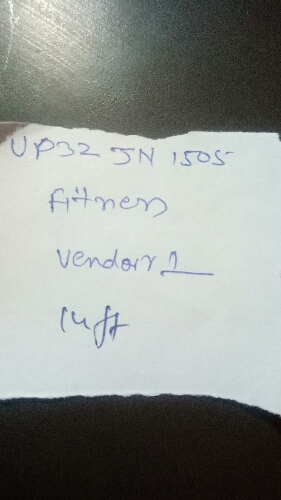 UP32 JN 1505
fitness
Vendor 1
14 ft